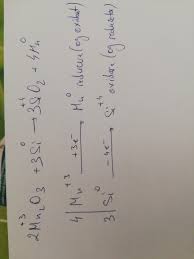 +3 0 +4 0
2Mn2O3 + 3Si → 3SiO2 + 4Mn
4 | Mn +3 +3e- → Mn 0 reducere (ag oxidant)
3 | Si 0 -4e- → Si +4 oxidare (ag reducător)